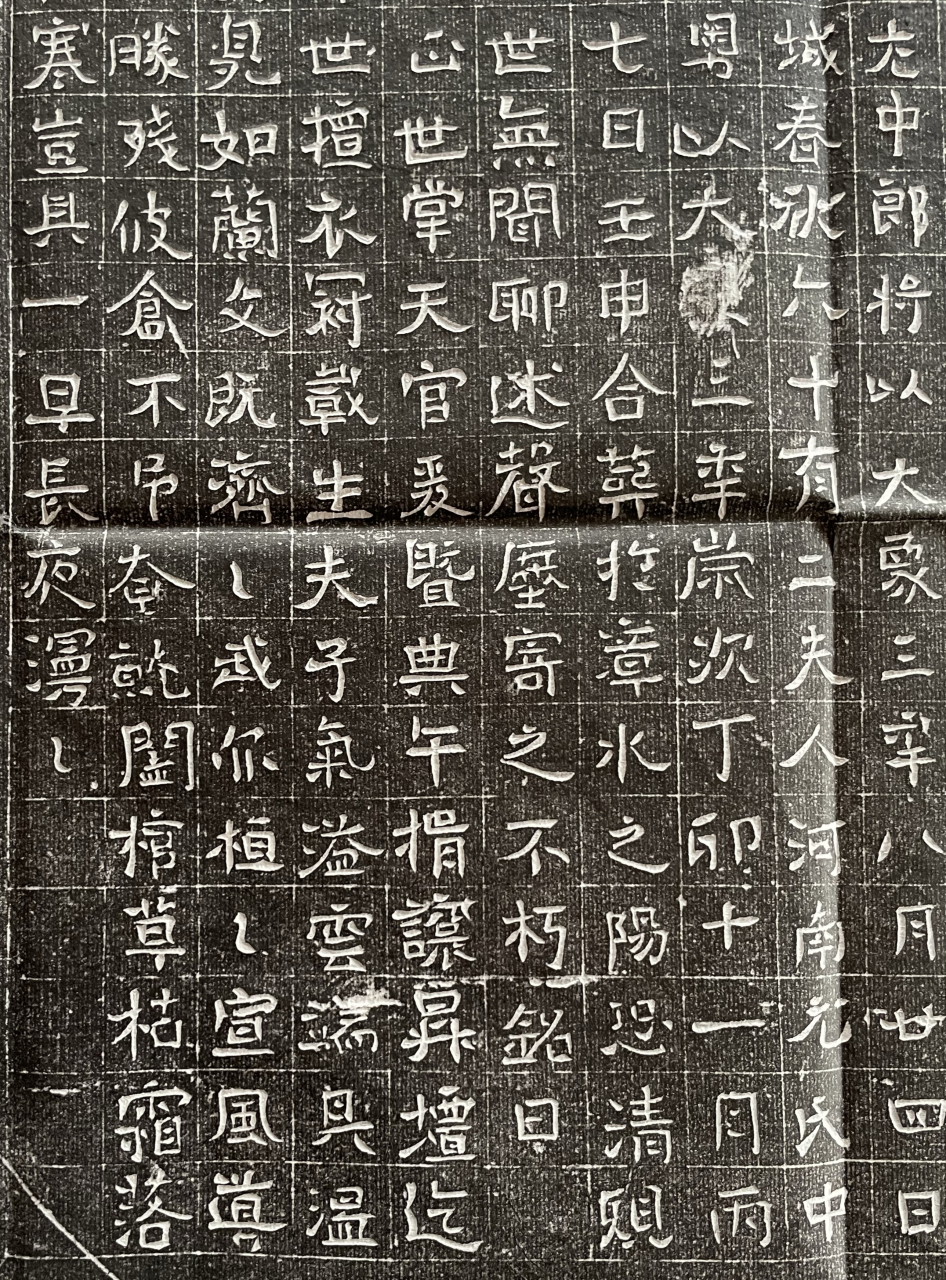 中郎将以大象三年八月廿四日
城春秋六十有二夫人河南元氏中
粤以大三年歲次丁卯十一月丙
七日壬申合葬於章水之陽恐清
世無聞聊述聲塵寄之不朽銘曰
正世掌天官爰暨典午揖讓昇壇迄
世擅衣冠載生夫子氣溢雲端與溫
見如蘭文既濟〻武亦桓〻宣風導
勝殘彼倉不弔奄就闔棺草枯霜落
寒豈具一早長夜漫〻